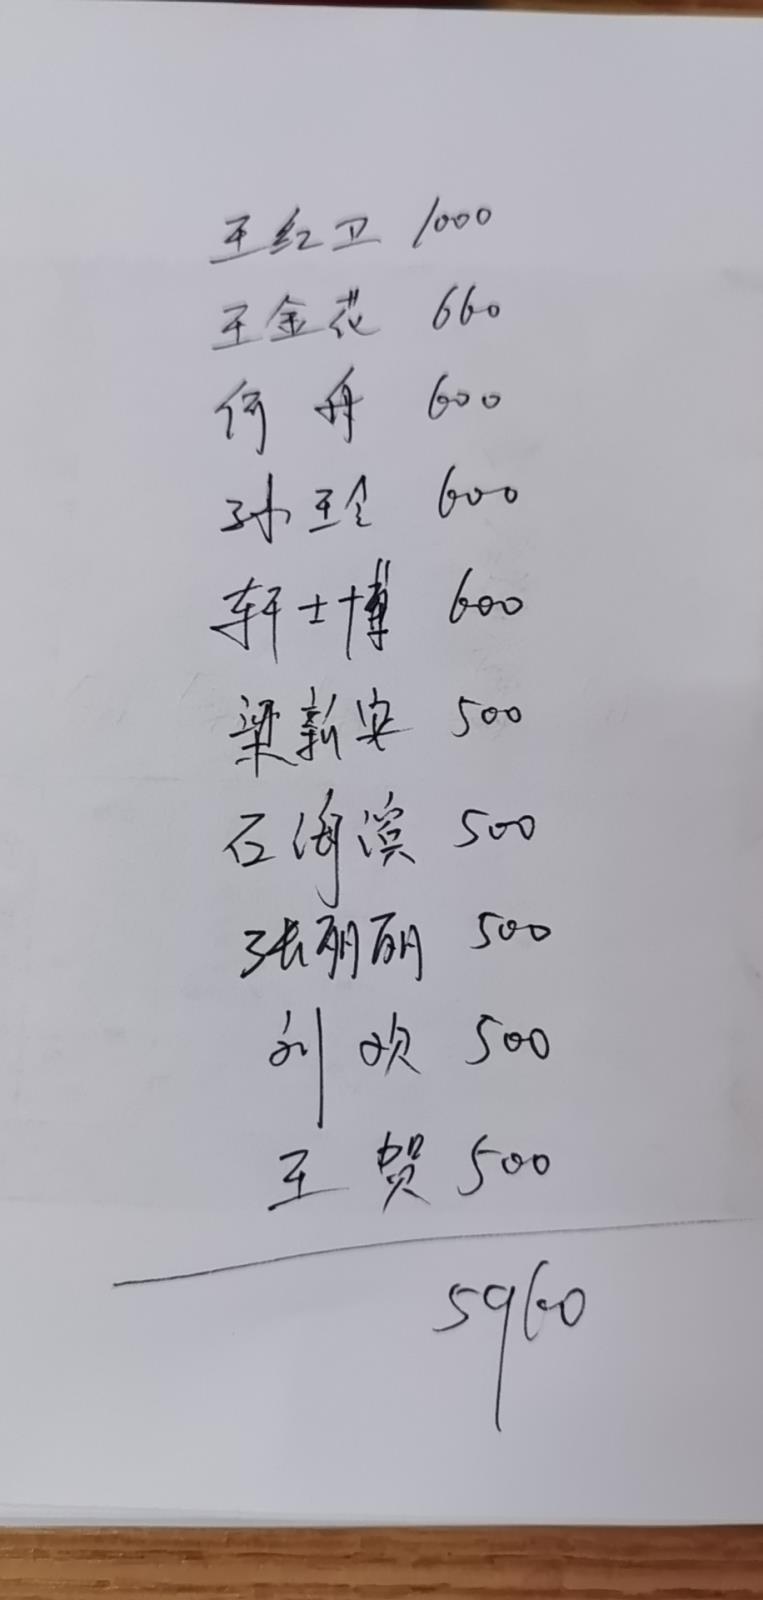 王红卫 1000
王金花 660
何舟 600
孙玉全 600
轩士博 600
梁新安 500
石海滨 500
张丽丽 500
刘欢 500
王贺 500
5960